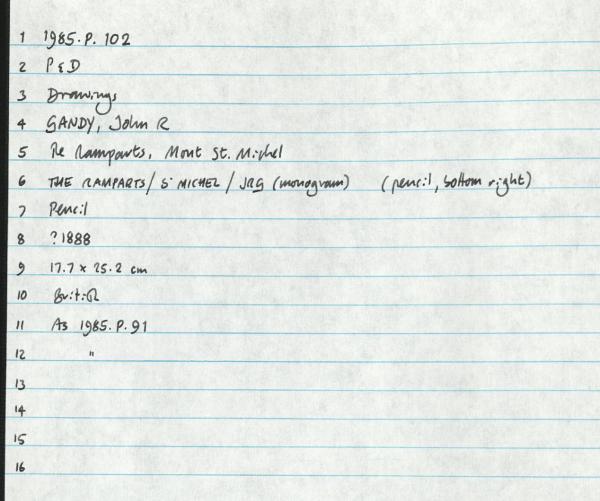 1 1985.P.102
2 P & D
3 Drawings
4 GANDY, John R
5 The Ramparts, Mont St. Michel
6 THE RAMPARTS/ St MICHEL / JRG (monogram) (pencil, bottom right)
7 Pencil
8 ?1888
9 17.7 x 25.2 cm
10 British
11 As 1985.P.91
12 "
13
14
15
16